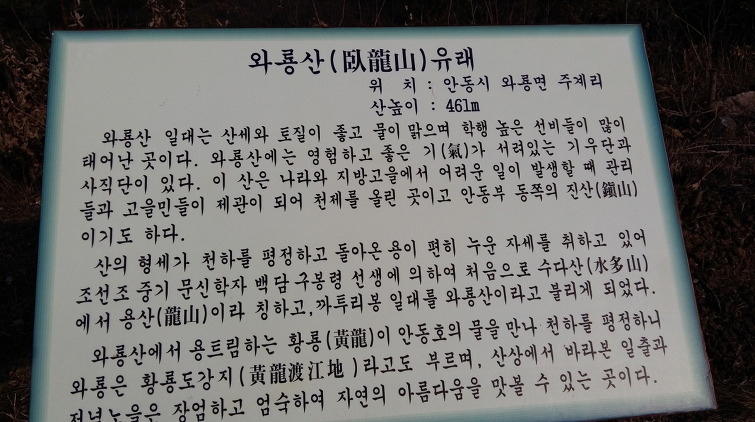 와룡산(臥龍山)유래
위 치 : 안동시 와룡면 주계리
산높이 : 461m
와룡산 일대는 산세와 토질이 좋고 물이 맑으며 학행 높은 선비들이 많이
태어난 곳이다. 와룡산에는 영험하고 좋은 기(氣)가 서려있는 기우단과
사직단이 있다. 이 산은 나라와 지방고을에서 어려운 일이 발생할 때 관리
들과 고을민들이 제관이 되어 천제를 올린 곳이고 안동부 동쪽의 진산(鎭山)
이기도 하다.
산의 형세가 천하를 평정하고 돌아온 용이 편히 누운 자세를 취하고 있어
조선조 중기 문신학자 백담 구봉령 선생에 의하여 처음으로 수다산(水多山)
에서 용산(龍山)이라 칭하고,까투리봉 일대를 와룡산이라고 불리게 되었다.
와룡산에서 용트림하는 황룡(黃龍)이 안동호의 물을 만나 천하를 평정하니
와룡은 황룡도강지(黃龍渡江地)라고도 부르며, 산상에서 바라본 일출과
저녁노을은 장엄하고 엄숙하여 자연의 아름다움을 맛볼 수 있는 곳이다.